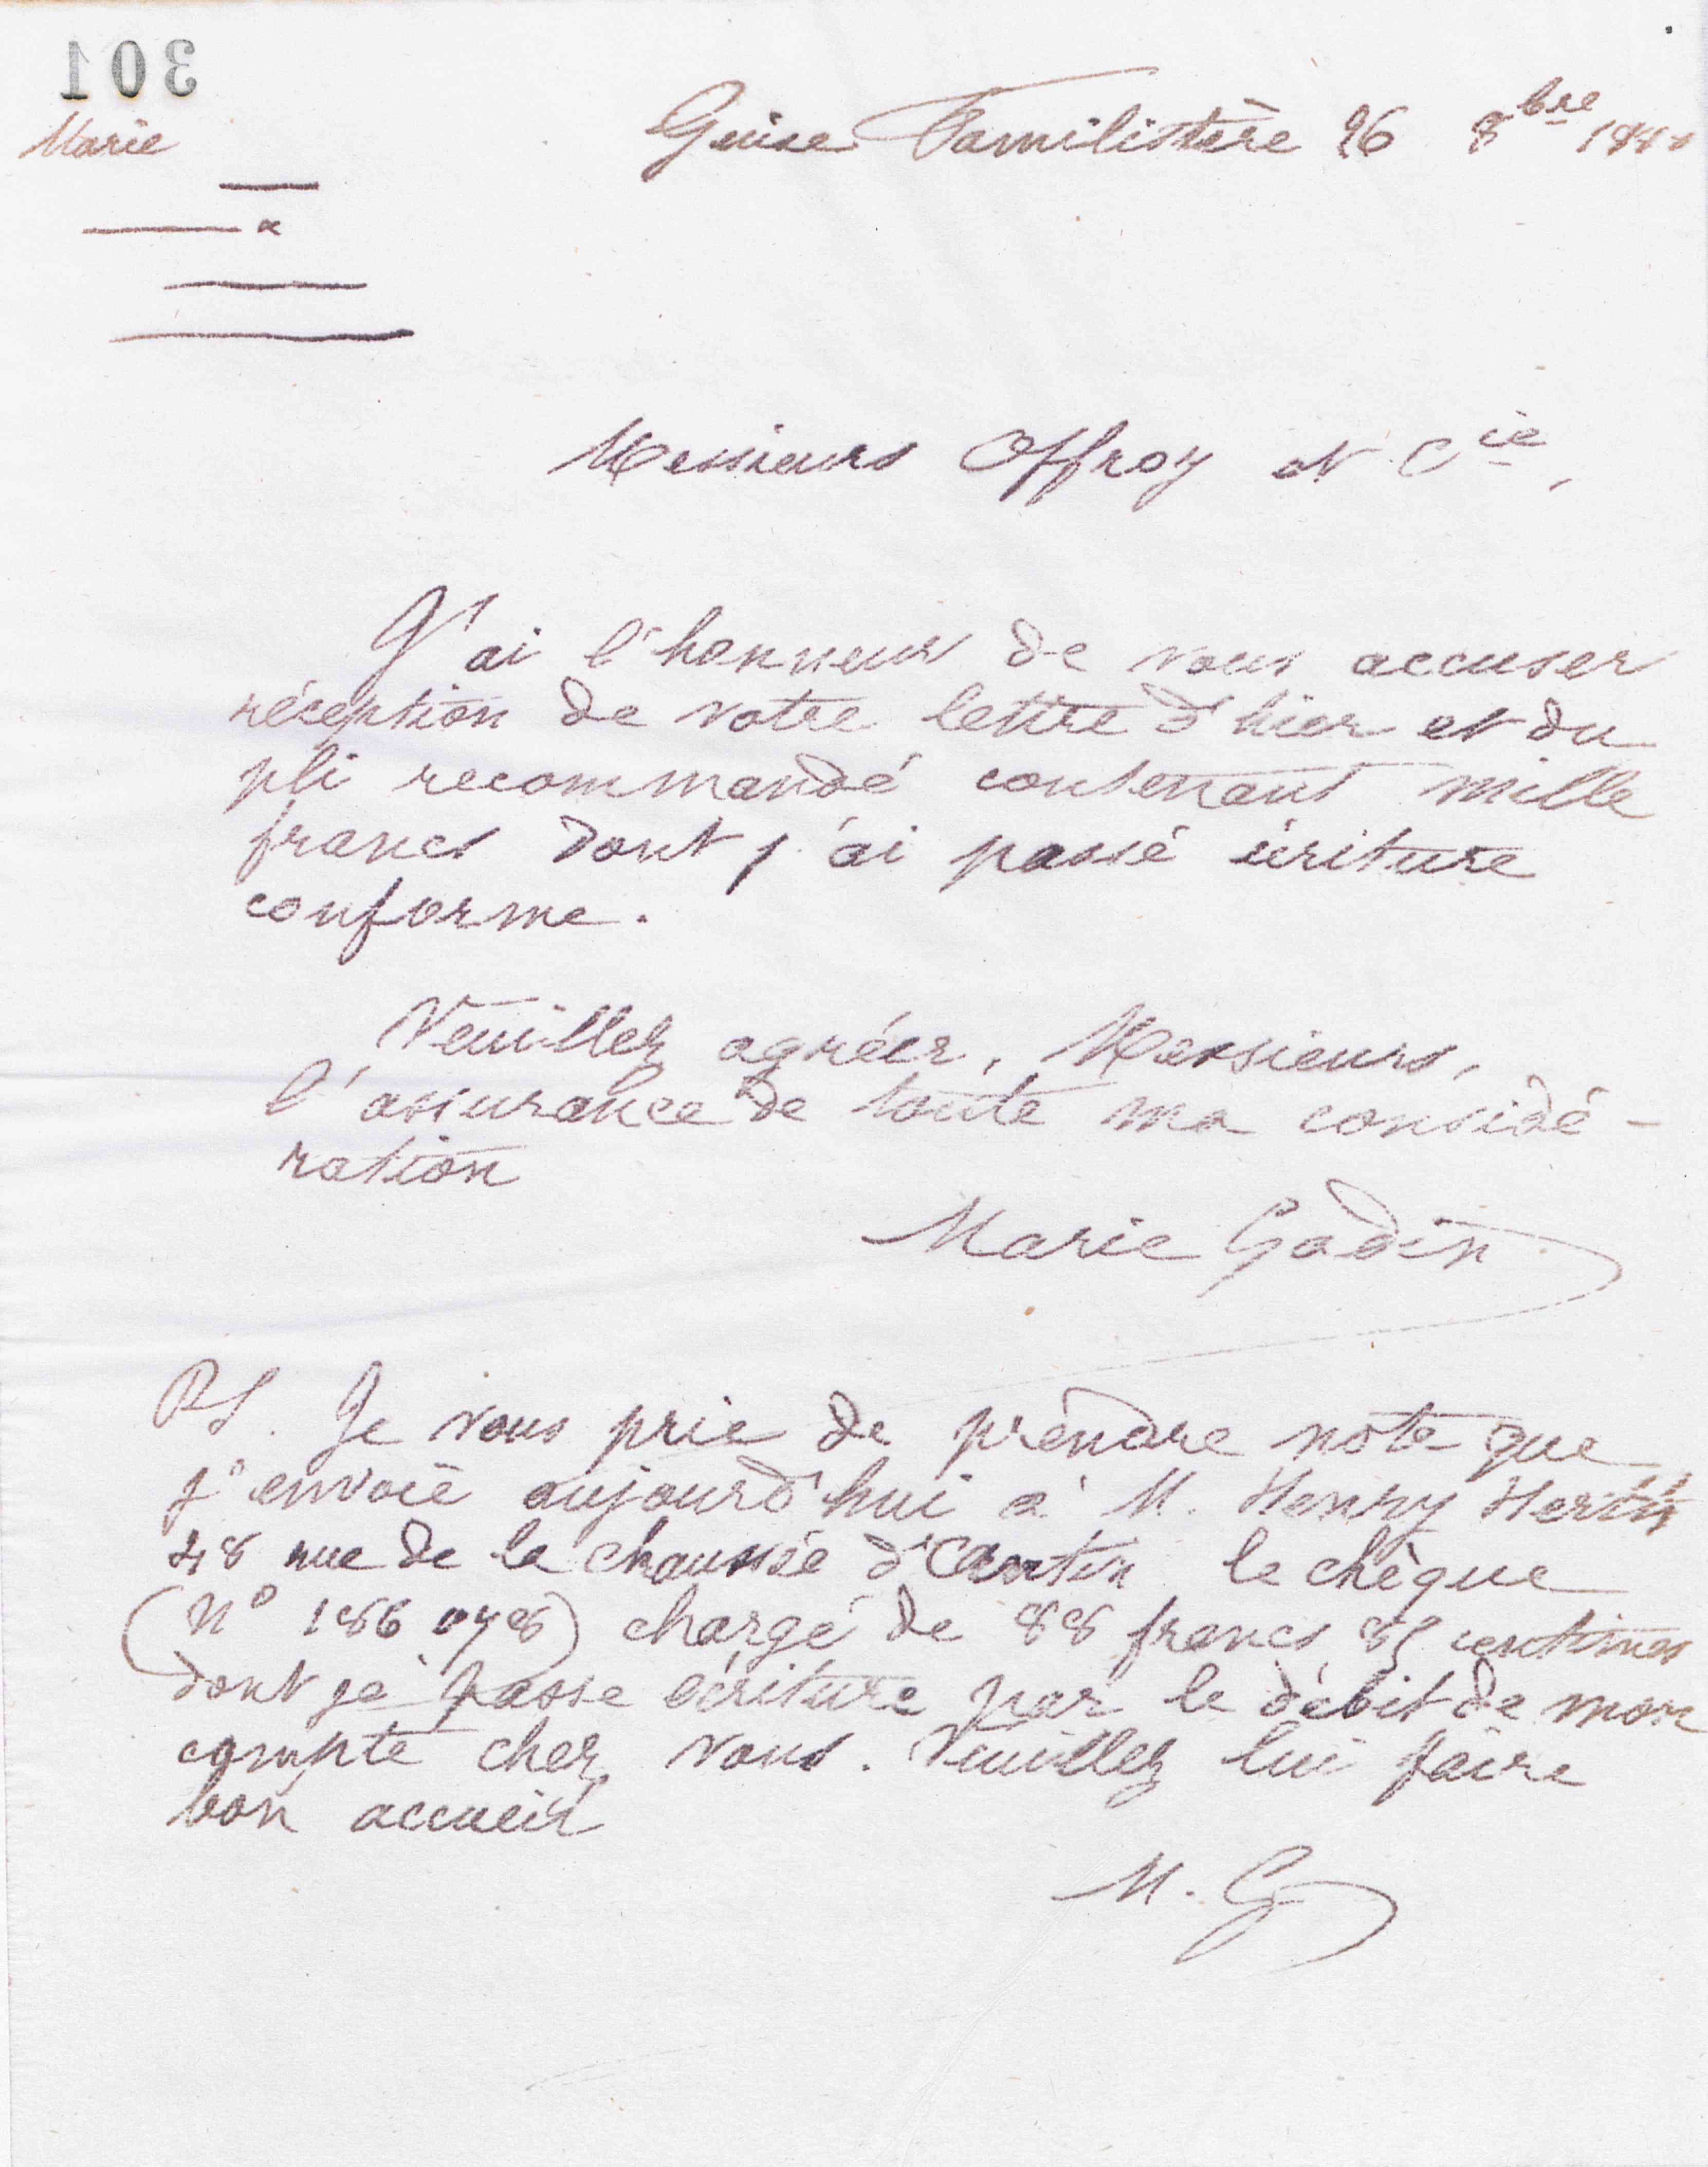 301
Marie
Guise Familistère 26 8bre 188
Messieurs Offroy et Cie,
J'ai l'honneur de vous accuser
réception de votre lettre d'hier et du
pli recommandé contenant mille
francs dont j'ai passé écriture
conforme.
Veuillez agréer, Messieurs,
l'assurance de toute ma considé-
ration
Marie Godin
PS. Je vous prie de prendre note que
j'envoie aujourd'hui à M. Henry
48 rue de la chaussée d'Antin le chèque
(No 186 078) chargé de 88 francs 85 centimes
dont je passe écriture par le débit de mon
compte chez vous. Veuillez lui faire
bon accueil
M. G